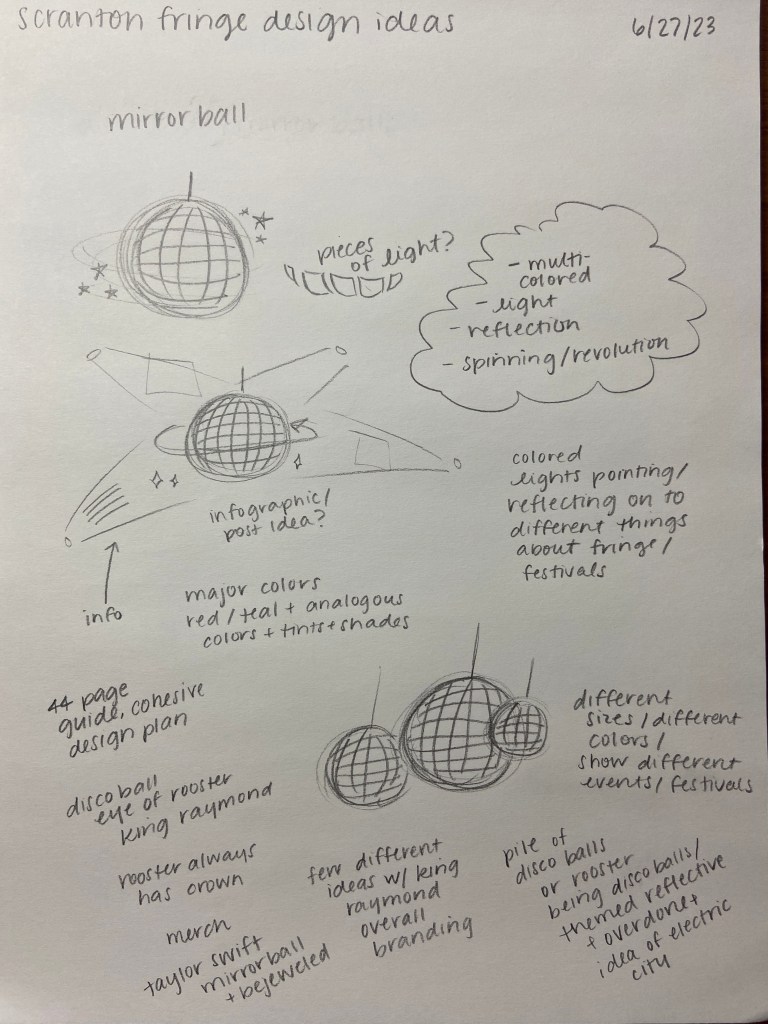 scranton fringe design ideas
6/27/23
mirror ball
pieces
of light?
- multi-
colored
- light
- reflection
- spinning/revolution
infographic/
post idea?
info
colored
lights pointing/
reflecting on to
different things
about fringe/
festivals
major colors
red/teal + analogous
colors + tints + shades
44 page
guide, cohesive
design plan
different
sizes/different
colors/
show different
events/festivals
disco ball
eye of rooster
king raymond
rooster always
has crown
merch
taylor swift
mirrorball
+ bejeweled
few different
ideas w/ king
raymond
overall
branding
pile of
disco balls
or rooster
being disco balls/
themed reflective
+ overdone +
idea of electric
city